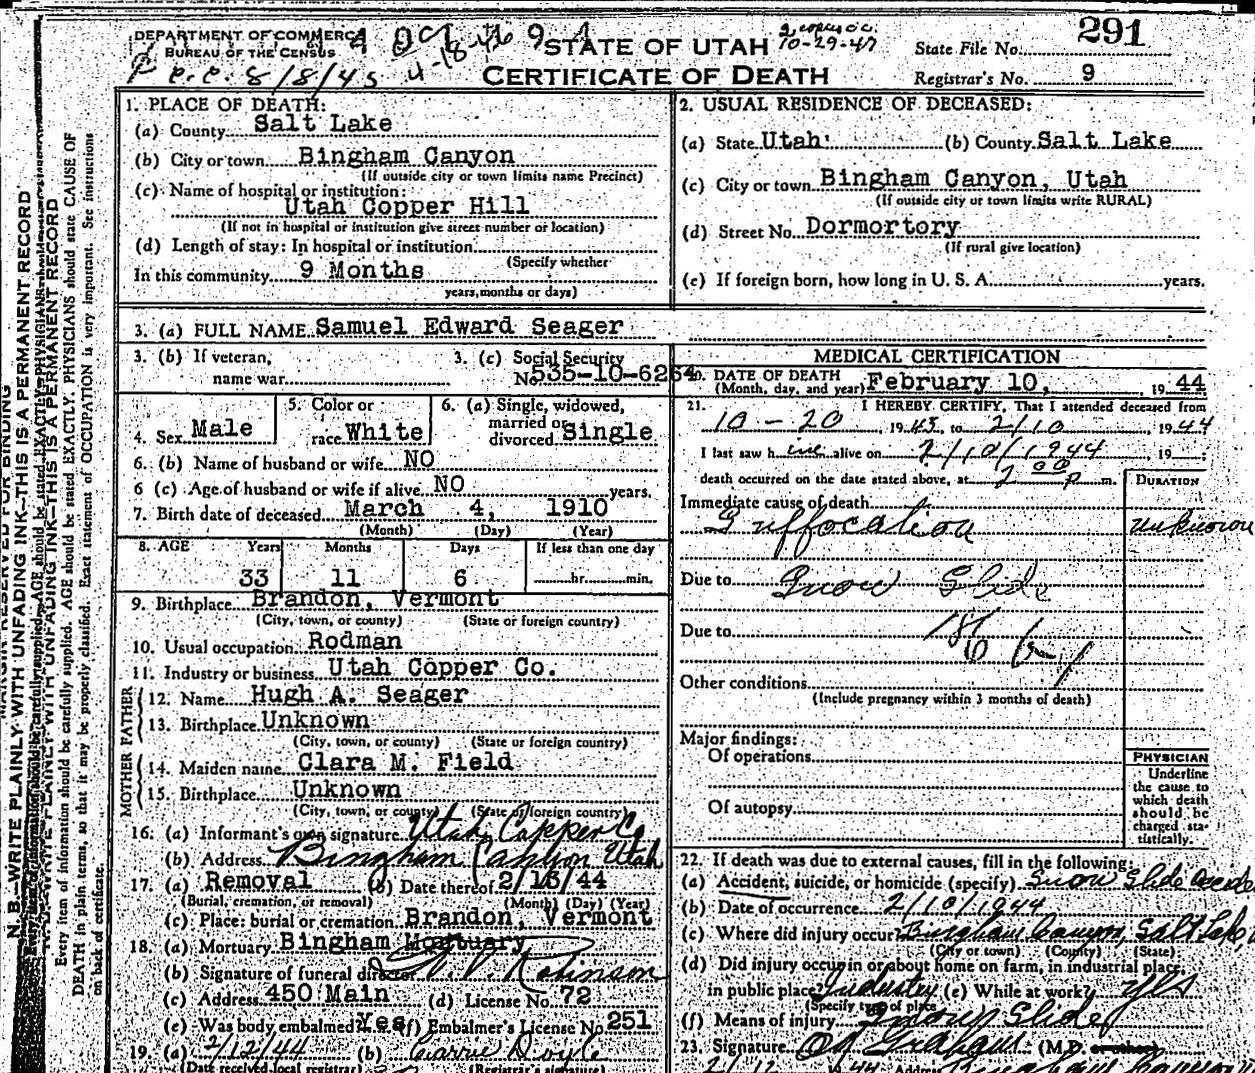 DEPARTMENT OF COMMERCE
BUREAU OF THE CENSUS
P.C. 8/8/45
4-18-46
STATE OF UTAH
10-29-47
CERTIFICATE OF DEATH
State File No. 291
Registrar's No. 9
1. PLACE OF DEATH:
(a) County Salt Lake
(b) City or town Bingham Canyon
(If outside city or town limits name Precinct)
(c) Name of hospital or institution:
Utah Copper Hill
(If not in hospital or institution give street number or location)
(d) Length of stay: In hospital or institution
(Specify whether
In this community 9 Months
years, months or days)
2. USUAL RESIDENCE OF DECEASED:
(a) State Utah (b) County Salt Lake
(c) City or town Bingham Canyon, Utah
(If outside city or town limits write RURAL)
(d) Street No. Dormortory
(If rural give location)
(e) If foreign born, how long in U. S. A. years.
3. (a) FULL NAME Samuel Edward Seager
3. (b) If veteran, name war
3. (c) Social Security No. 535-10-6264
4. Sex Male
5. Color or race White
6. (a) Single, widowed, married or divorced Single
6. (b) Name of husband or wife NO
6 (c) Age of husband or wife if alive NO years.
7. Birth date of deceased March 4, 1910
(Month) (Day) (Year)
8. AGE Years Months Days If less than one day
33 11 6 hr. min.
9. Birthplace Brandon, Vermont
(City, town, or county) (State or foreign country)
10. Usual occupation Rodman
11. Industry or business Utah Copper Co.
FATHER
12. Name Hugh A. Seager
13. Birthplace Unknown
(City, town, or county) (State or foreign country)
MOTHER
14. Maiden name Clara M. Field
15. Birthplace Unknown
(City, town, or county) (State or foreign country)
16. (a) Informant's own signature Utah Copper Co
(b) Address Bingham Canyon Utah
17. (a) Removal (b) Date thereof 2/13/44
(Burial, cremation, or removal) (Month) (Day) (Year)
(c) Place: burial or cremation Brandon, Vermont
18. (a) Mortuary Bingham Mortuary
(b) Signature of funeral director Robinson
(c) Address 450 Main (d) License No. 72
(e) Was body embalmed? Yes (f) Embalmer's License No. 251
19. (a) 2/12/44 (b) Carrie Doyle
(Date received local registrar) (Registrar's signature)
MEDICAL CERTIFICATION
20. DATE OF DEATH
(Month, day, and year) February 10, 1944
21. I HEREBY CERTIFY, That I attended deceased from
10-20, 1943, to 2/10, 1944
I last saw him alive on 2/10/1944 19
death occurred on the date stated above, at 2 00 p m.
DURATION
Immediate cause of death
Suffocation unknown
Due to Snow Slide
Due to
Other conditions
(Include pregnancy within 3 months of death)
Major findings:
Of operations
Of autopsy
PHYSICIAN
Underline
the cause to
which death
should be
charged sta-
tistically.
22. If death was due to external causes, fill in the following:
(a) Accident, suicide, or homicide (specify) Snow Slide
(b) Date of occurrence 2/10/1944
(c) Where did injury occur? Bingham Canyon, Salt Lake
(City or town) (County) (State)
(d) Did injury occur in or about home on farm, in industrial place,
in public place? Industry (e) While at work? yes
(Specify type of place)
(f) Means of injury Snow Slide
23. Signature (M.D. or other)
N. B.—WRITE PLAINLY WITH UNFADING INK—THIS IS A PERMANENT RECORD
Every item of information should be carefully supplied. AGE should be stated EXACTLY. PHYSICIANS should state CAUSE OF
DEATH in plain terms, so that it may be properly classified. Exact statement of OCCUPATION is very important. See instructions
on back of certificate.